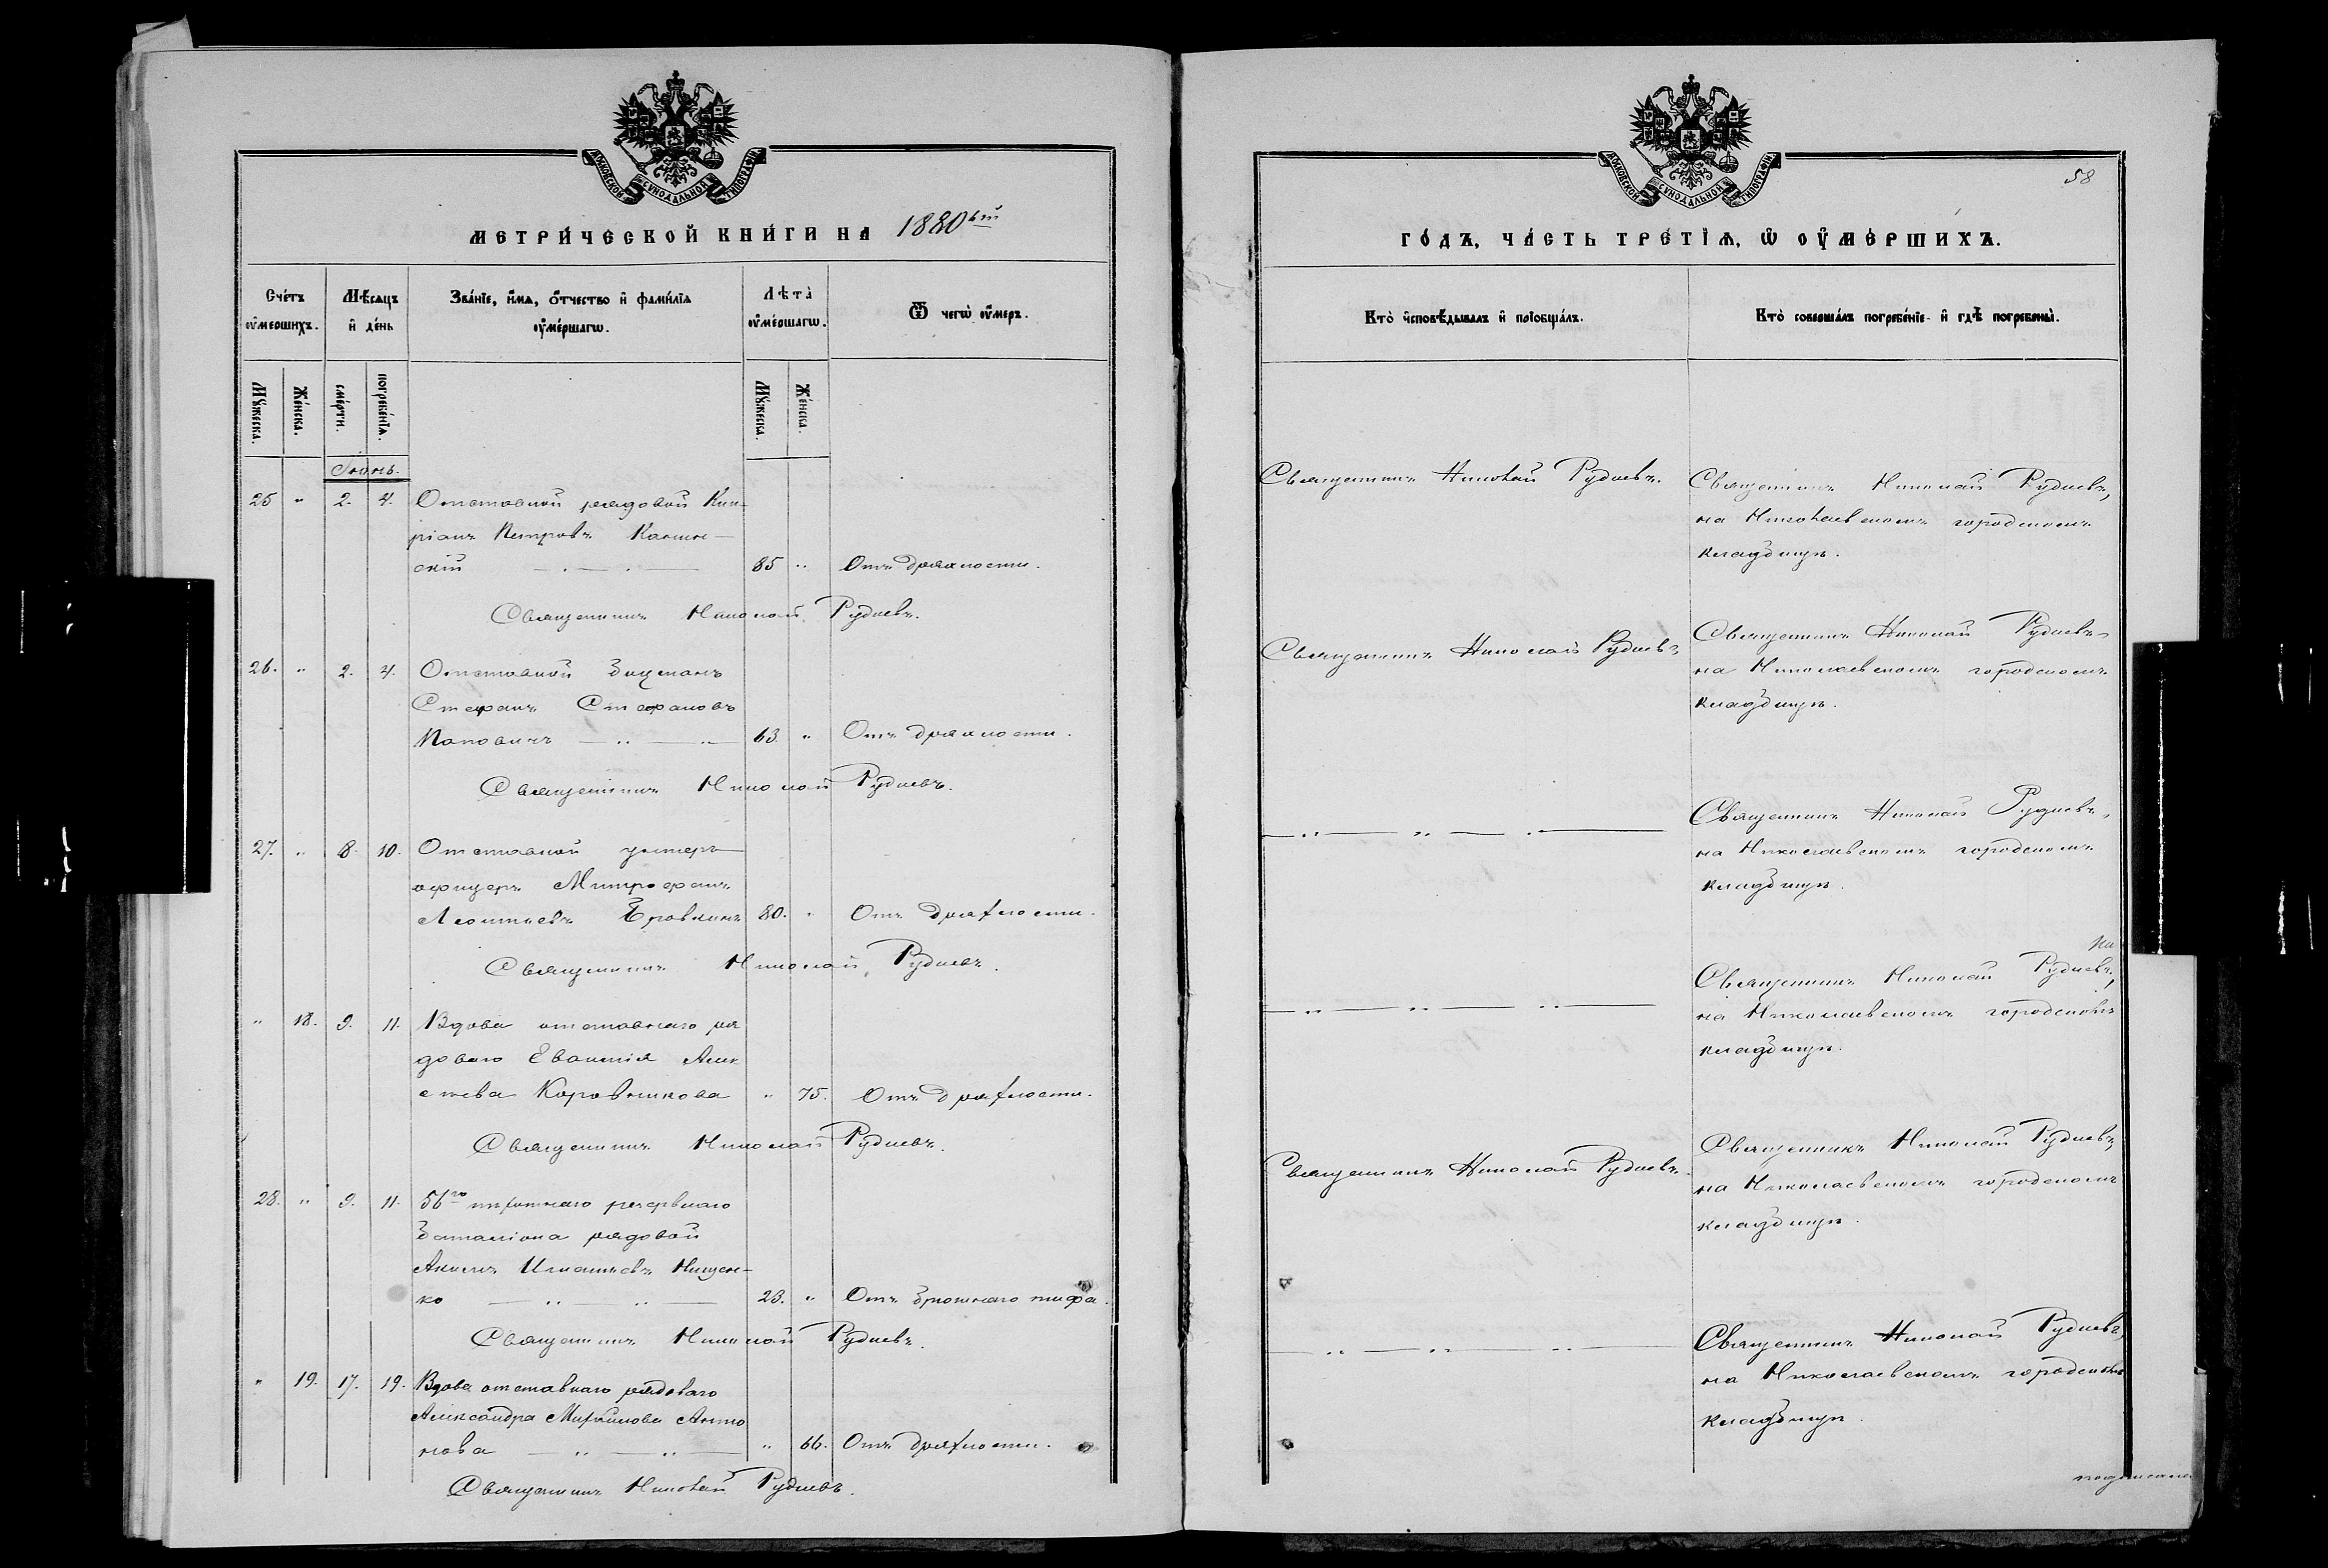 МОСКОВСКОЙ СѴНОДАЛЬНОЙ ТИПОГРАФІИ
МЕТРИ́ЧЕСКОЙ КНИ́ГИ НА 1880ый
Сче́тъ ᲂу҆ме́ршихъ.
Мѣ́сѧцъ и҆ де́нь
Зва́нїе, и҆́мѧ, ѻ҆́тчество и҆ фами́лїѧ ᲂу҆ме́ршагѡ.
Лѣта̀ ᲂу҆ме́ршагѡ.
Ѿ чегѡ̀ ᲂу҆́меръ.
Мꙋ́жеска.
Же́нска.
сме́рти.
погребе́нїѧ.
Мꙋ́жеска.
Же́нска.
Іюнь.
25 " 2. 4. Отставной рядовой Кип-
ріанъ Петровъ
скій 85 " Отъ дряхлости.
Священникъ Николай Рудневъ.
26. " 2. 4. Отставной боцманъ
Стефанъ Стефановъ
63. " Отъ дряхлости.
Священникъ Николай Рудневъ.
27. " 8. 10. Отставной унтеръ-
офицеръ Митрофанъ
Леонтьевъ 80. " Отъ дряхлости.
Священникъ Николай Рудневъ.
" 18. 9. 11. Вдова отставнаго ря
доваго Алек
сѣева Коровникова " 75. Отъ дряхлости.
Священникъ Николай Рудневъ.
28. " 9. 11. 56го пѣхотнаго резервнаго
баталіона рядовой
Акимъ Игнатьевъ Нищен-
ко 23. " Отъ брюшнаго тифа.
Священникъ Николай Рудневъ.
" 19. 17. 19. Вдова отставнаго рядоваго
Александра Михайлова Анто
нова " 66. Отъ дряхлости.
Священникъ Николай Рудневъ.
МОСКОВСКОЙ СѴНОДАЛЬНОЙ ТИПОГРАФІИ
58
ГО́ДЪ, ЧА́СТЬ ТРЕ́ТЇѦ, Ѡ҆ ОУ҆МЕ́РШИХЪ.
Кто̀ и҆сповѣ́дывалъ и҆ прїобща́лъ.
Кто̀ соверша́лъ погребе́нїе и҆ гдѣ̀ погребены̀.
Священникъ Николай Рудневъ.
Священникъ Николай Рудневъ,
на Николаевскомъ городскомъ
кладбищѣ.
Священникъ Николай Рудневъ
Священникъ Николай Рудневъ
на Николаевскомъ городскомъ
кладбищѣ.
Священникъ Николай Рудневъ,
на Николаевскомъ городскомъ
кладбищѣ.
на
Священникъ Николай Рудневъ,
на Николаевскомъ городскомъ
кладбищѣ.
Священникъ Николай Рудневъ.
Священникъ Николай Рудневъ,
на Николаевскомъ городскомъ
кладбищѣ.
Священникъ Николай Рудневъ,
на Николаевскомъ городскомъ
кладбищѣ.